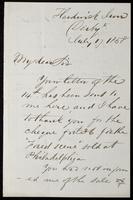 Hardwick Grove
Derby
July 17, 1858
My dear Sir
Your letter of the
14th has been sent to
me here and I have
to thank you for the
cheque for the
"Forest Scene" sold at
Philadelphia.
You had not inform
ed me of the sale of